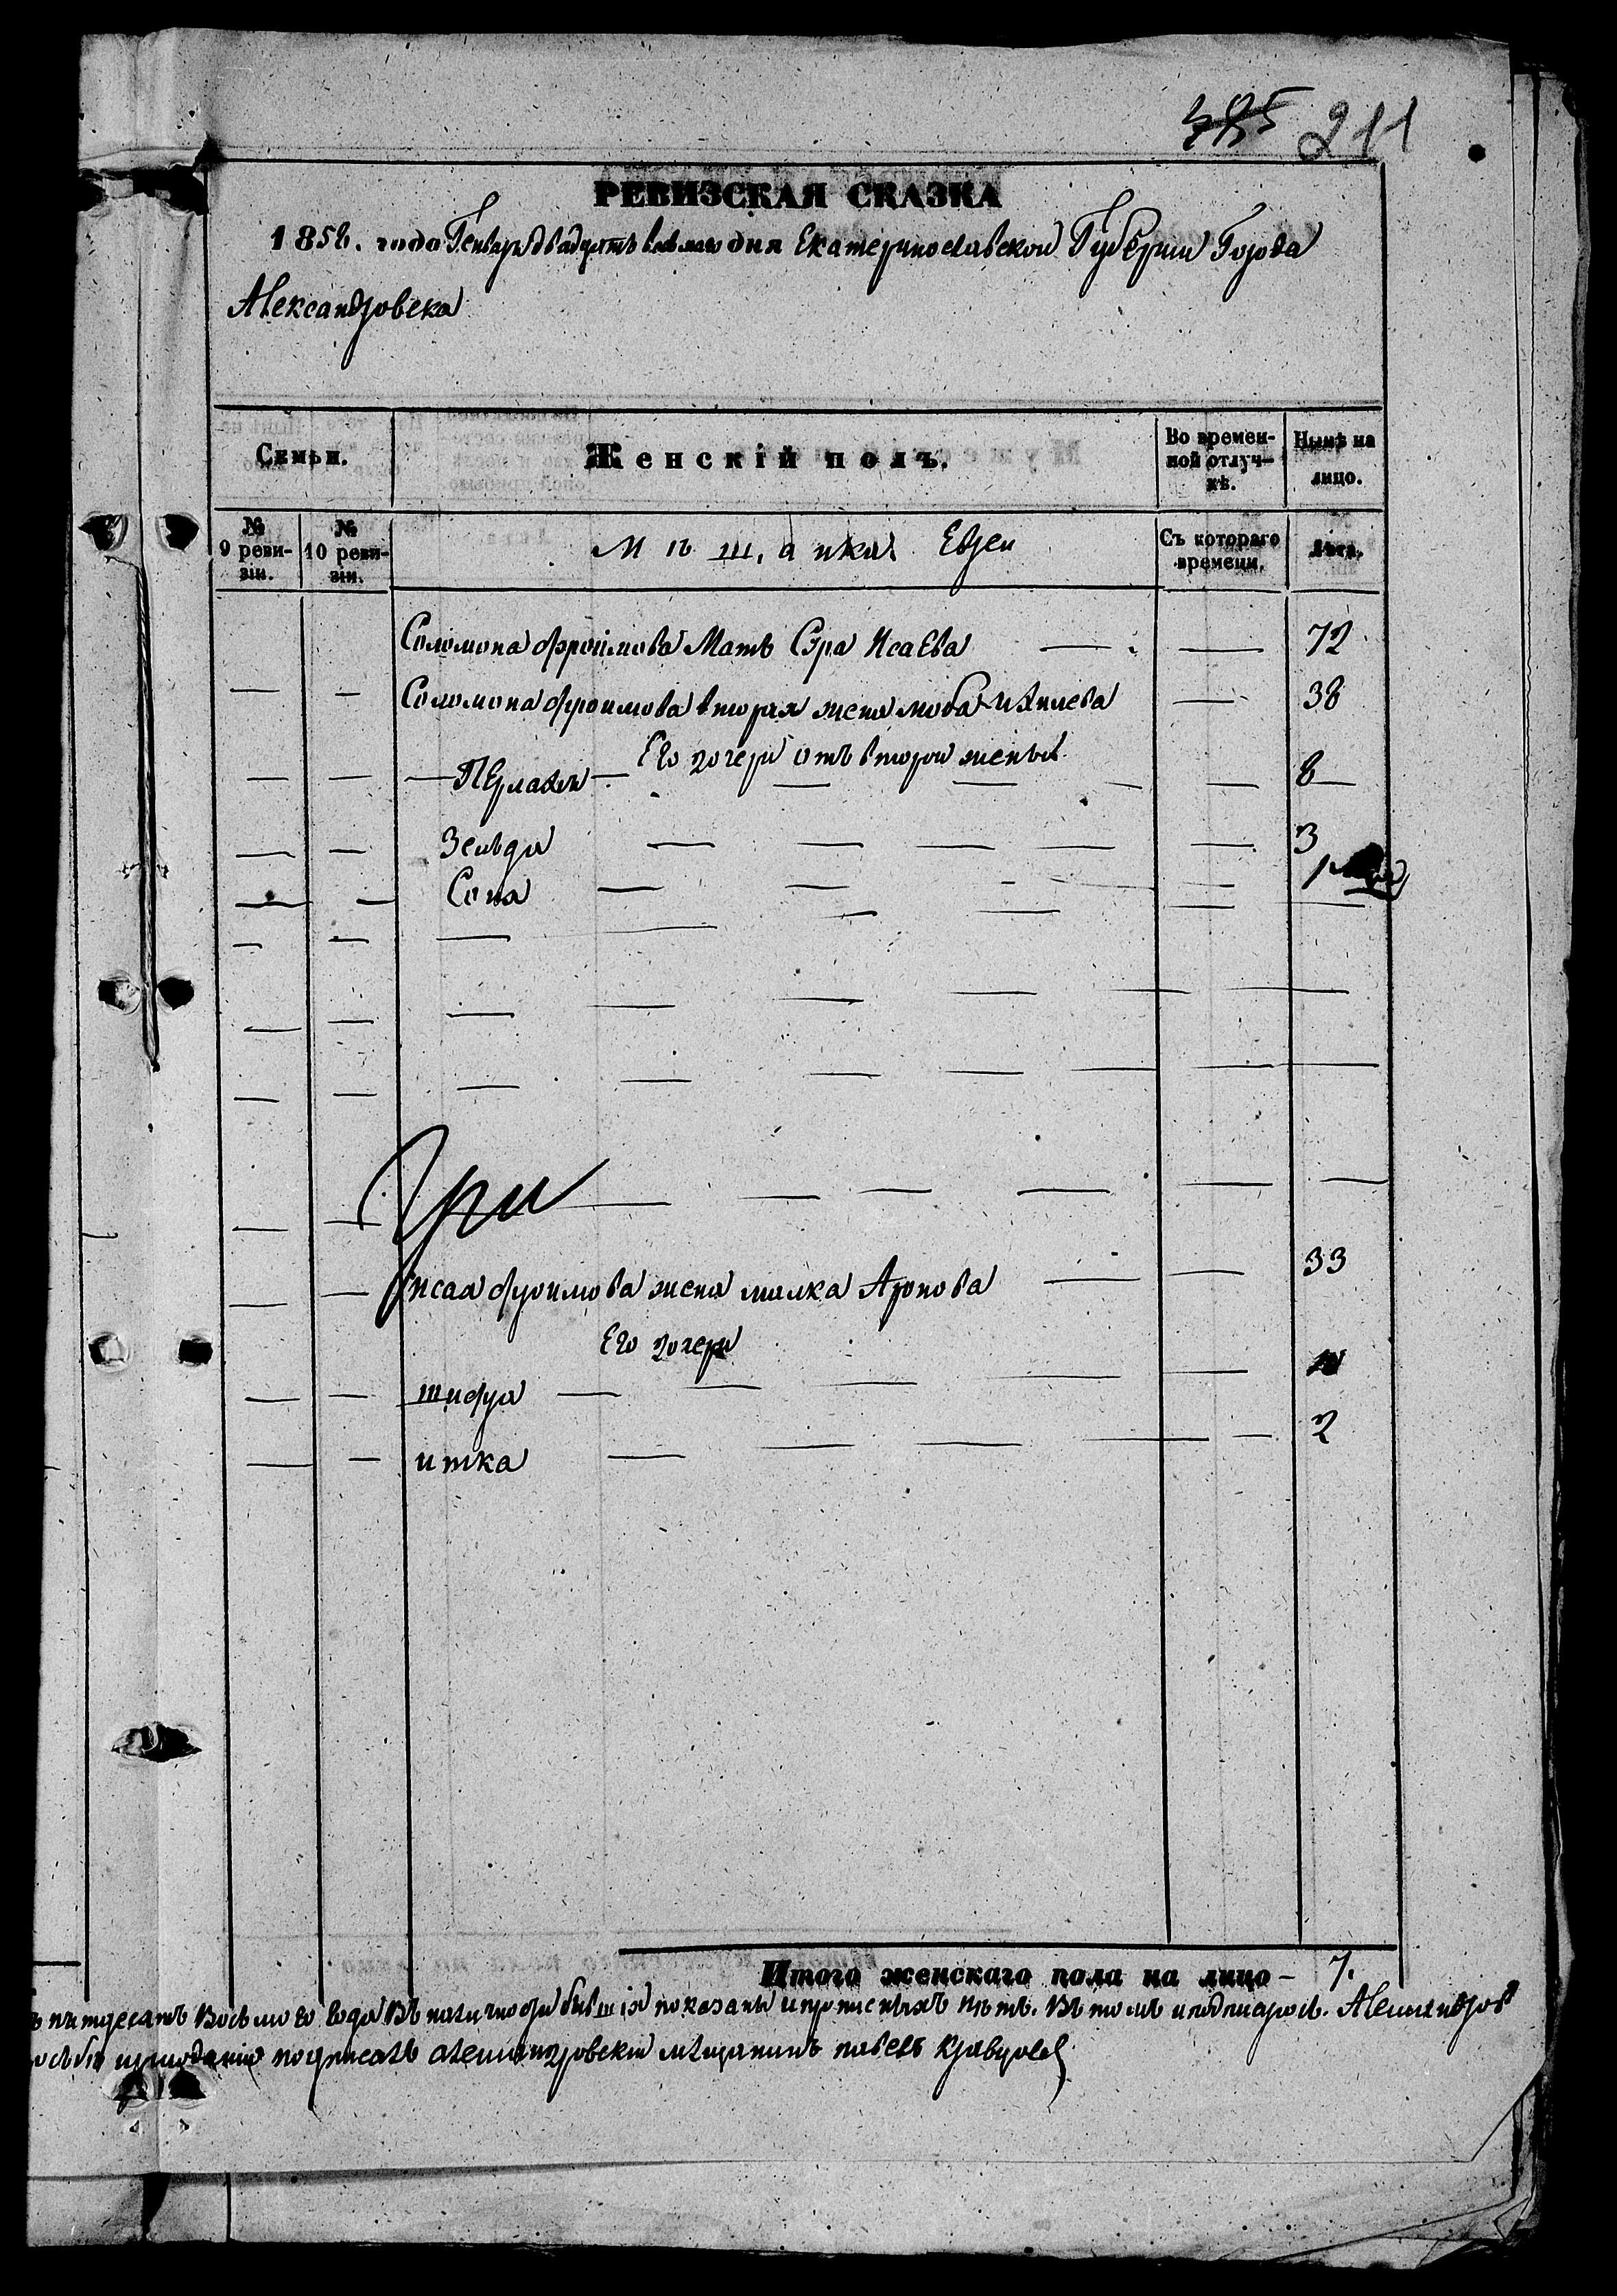 385 211
РЕВИЗСКАЯ СКАЗКА
1858. года Генваря двадцать восьмаго дня Екатеринославской Губернии Города
Александровска
Семьи.
Женскій полъ.
Во времен-
ной отлуч-
кѣ.
Нынѣ на
лицо.
№
9 реви-
зіи.
№
10 реви-
зіи.
Мѣщанка Евреи
Съ котораго
времени.
Лѣта.
Соломона Фроимова Мать Сэра Исаева — — 72
— — Соломона Фроимова вторая жена — 38
Его дочери отъ второй жены
— — — — — — — 8
— — Зельда — — — — — 3
— — Сона — — — — 1
— — Исая Фроимова жена малка Аронова — — 33
Его дочери
— — шифра — — — — —
— — итка — — — — — 2
Итого женскаго пола на лицо — 7.
пятдесятъ Восьмого года Въ наличности бывшія показаны и прописныхъ нѣтъ. Въ томъ и подписуюсь.
подписалъ мѣщанинъ павелъ